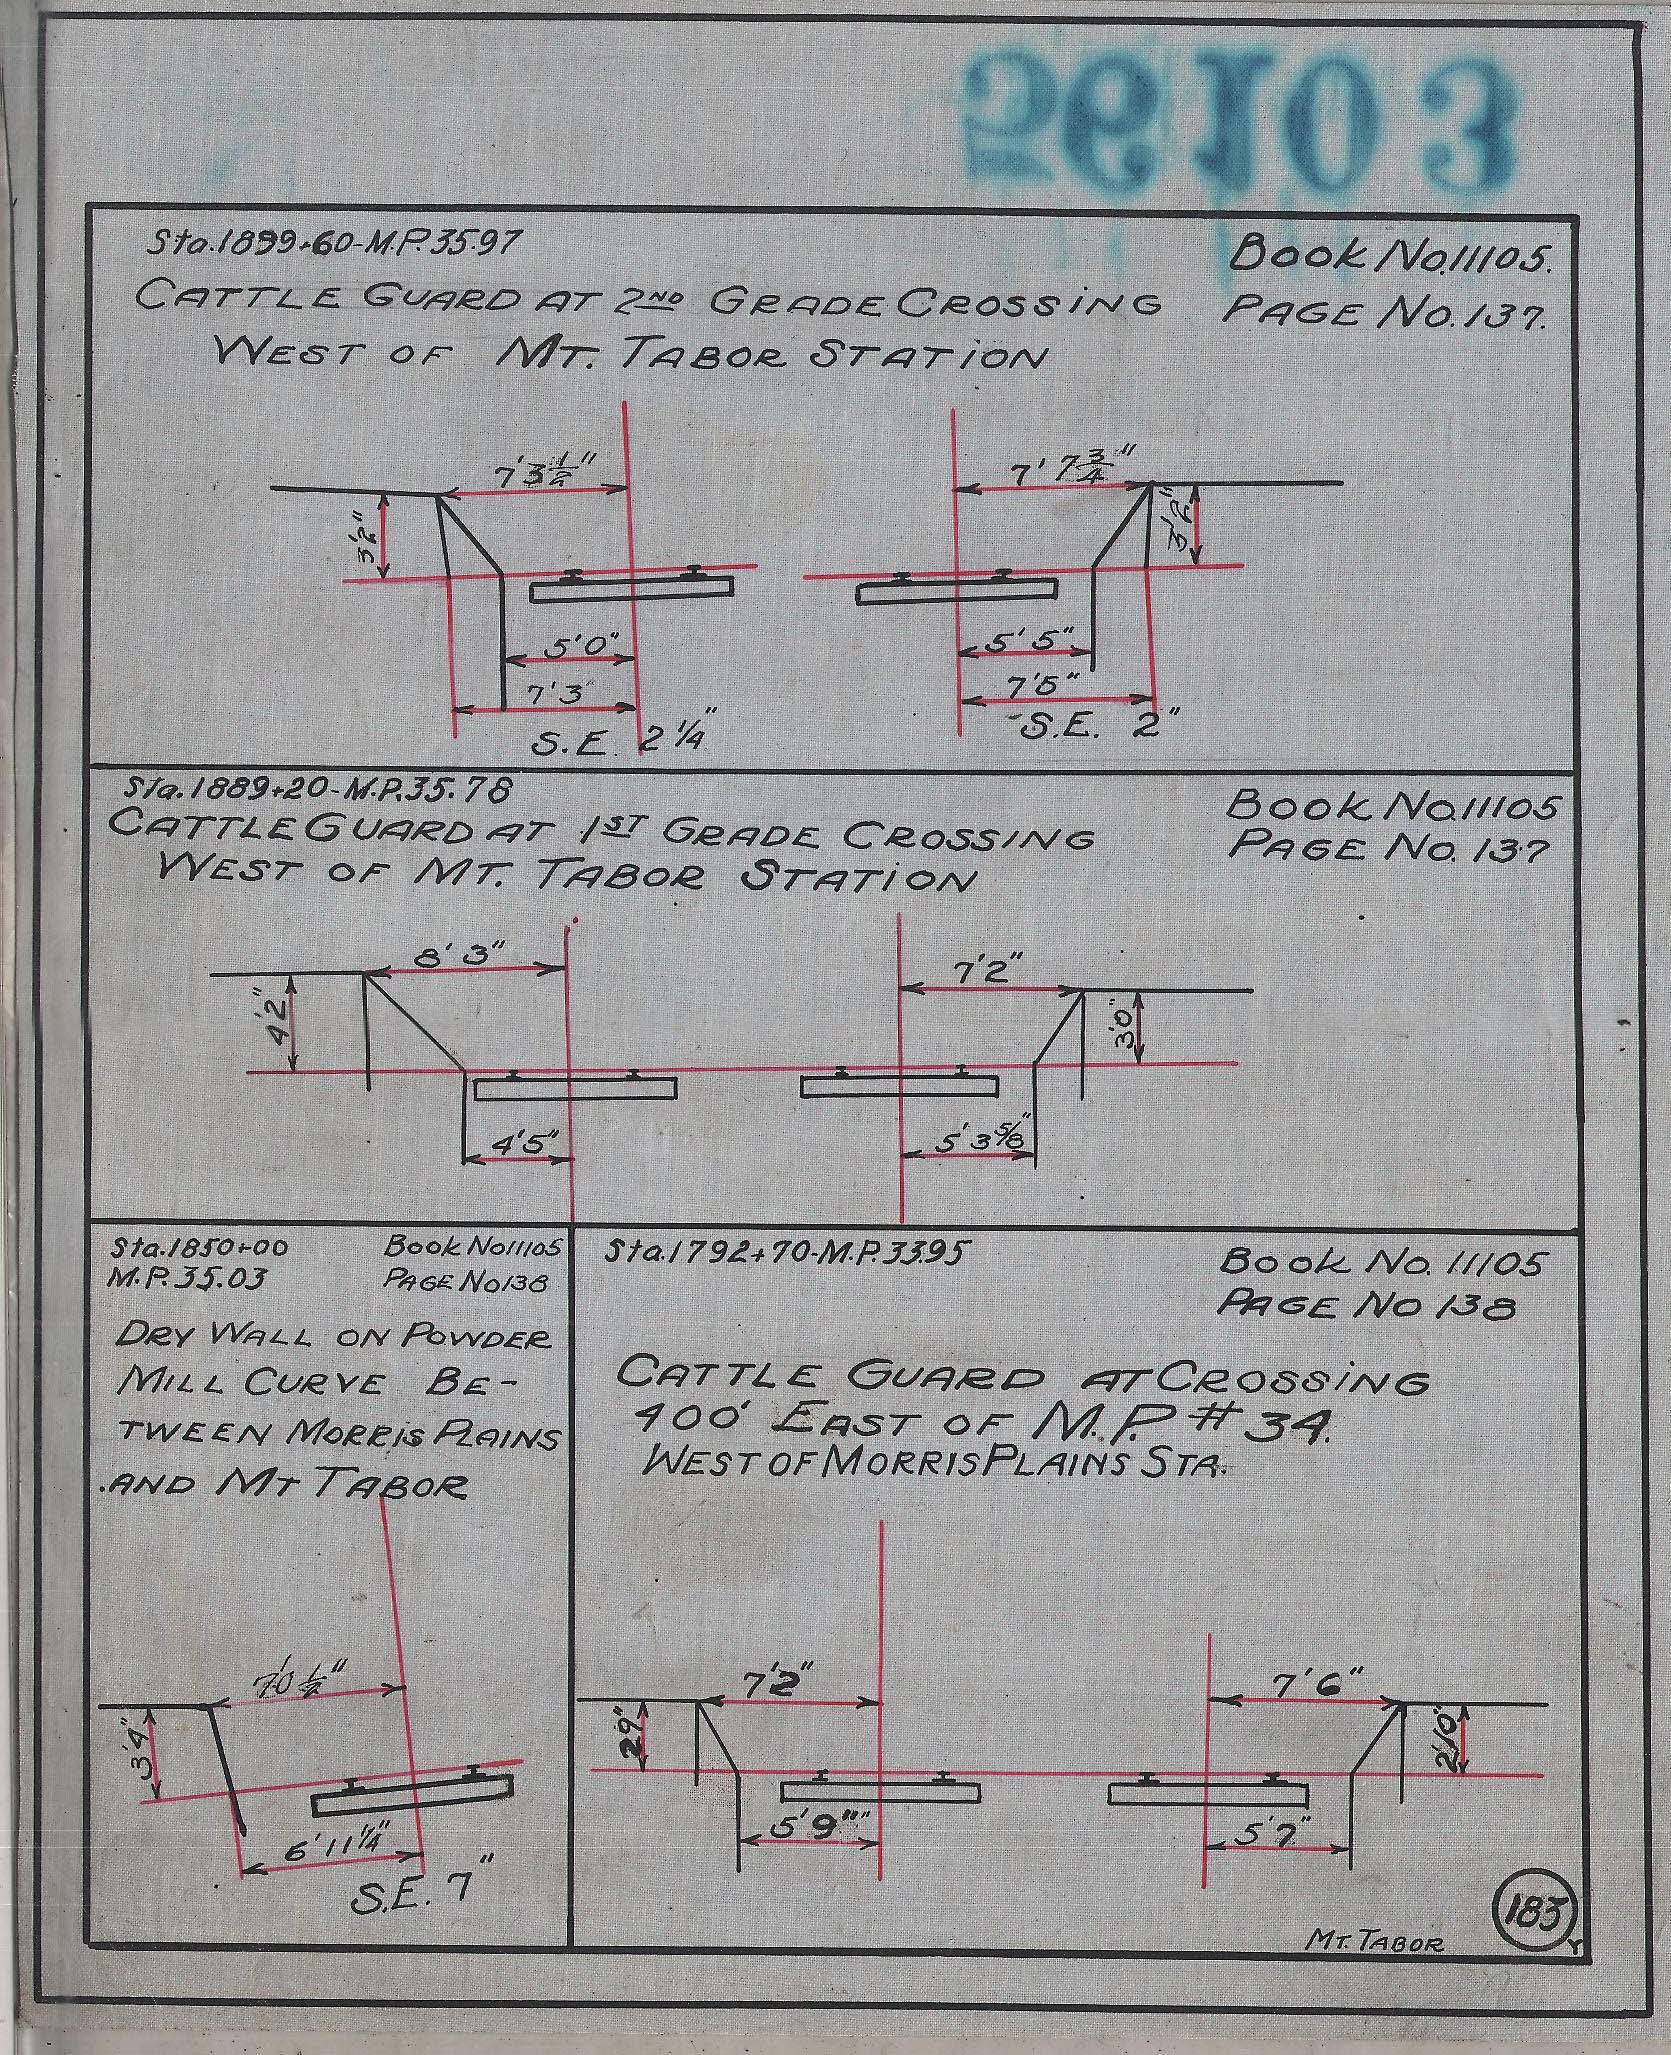 Sta.1899+60-M.P.35.97
Book No.11105.
CATTLE GUARD AT 2ND GRADE CROSSING
PAGE No.137.
WEST OF MT. TABOR STATION
7'3½"
7'7¾"
3'2"
3'2"
5'0"
5'5"
7'3"
7'5"
S.E. 2¼"
S.E. 2"
Sta.1889+20-M.P.35.78
BOOK No.11105
CATTLE GUARD AT 1ST GRADE CROSSING
PAGE No. 137
WEST OF MT. TABOR STATION
8'3"
7'2"
4'2"
3'0"
4'5"
5'3⅝"
Sta.1850+00
Book No11105
M.P.35.03
PAGE No138
DRY WALL ON POWDER
MILL CURVE BE-
TWEEN MORRIS PLAINS
AND MT TABOR
7'0½"
3'4"
6'11¼"
S.E. 7"
Sta.1792+70-M.P.33.95
BOOK No. 11105
PAGE No 138
CATTLE GUARD AT CROSSING
400' EAST OF M.P. # 34.
WEST OF MORRIS PLAINS STA.
7'2"
7'6"
2'9"
2'10"
5'9"
5'7"
183
MT. TABOR